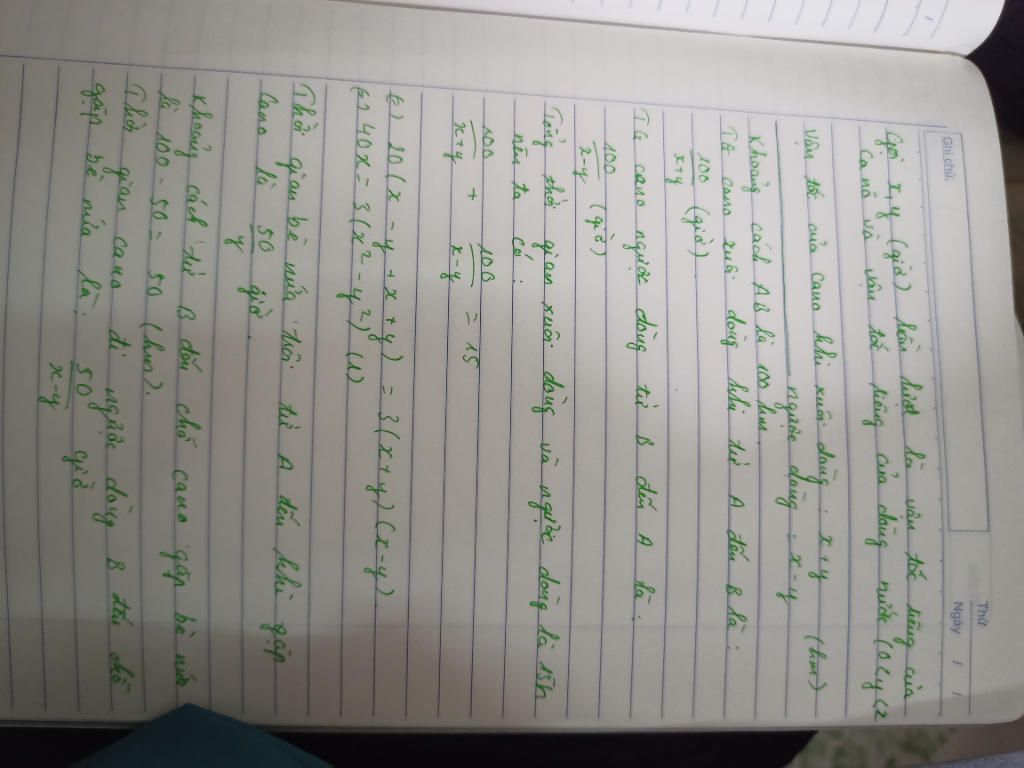 Ghi chú:
Thứ
Ngày / /
Gọi x, y (giờ) lần lượt là vận tốc riêng của
Ca nô và vận tốc riêng của dòng nước (0<y<x
Vận tốc của cano khi xuôi dòng : x+y (km)
ngược dòng : x-y
Khoảng cách AB là 100 km.
Tg cano xuôi dòng khi từ A đến B là :
100/x+y (giờ)
Tg cano ngược dòng từ B đến A là :
100/x-y (giờ)
Tổng thời gian xuôi dòng và ngược dòng là 15h
nên ta có :
100/x+y + 100/x-y = 15
(=) 20(x - y + x + y) = 3(x+y)(x-y)
(=) 40x = 3(x2 - y2) (1)
Thời gian bè nứa trôi từ A đến khi gặp
Cano là 50/y giờ.
Khoảng cách từ B đến chỗ cano gặp bè nứa
là 100 - 50 = 50 (km).
Thời gian cano đi ngược dòng B đến chỗ
gặp bè nứa là : 50/x-y giờ